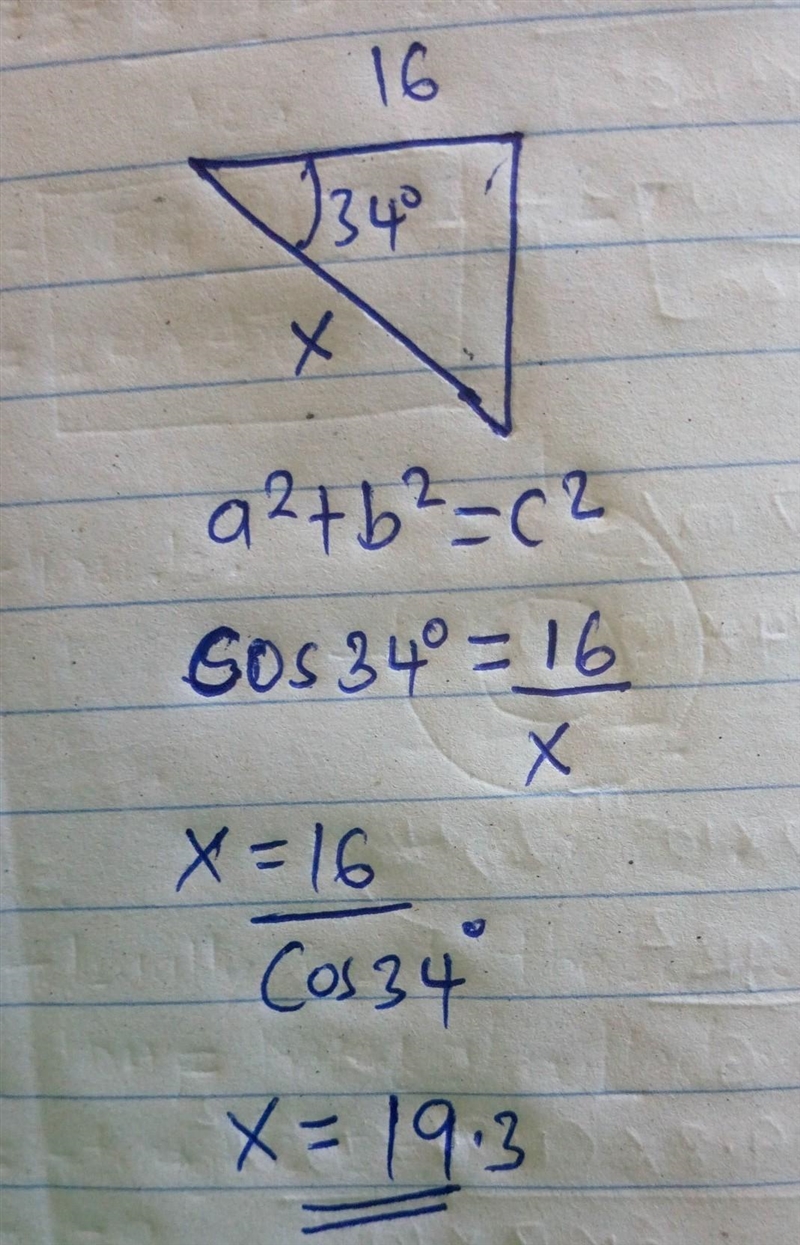 16
34°
x
a²+b²=c²
Cos34°=16
x
x=16
Cos34°
x=19.3